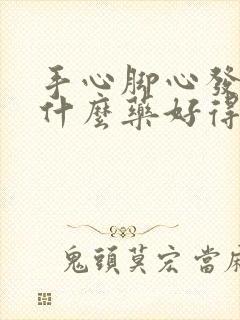 手心脚心發
什麼藥好得
鬼頭莫宏當麻